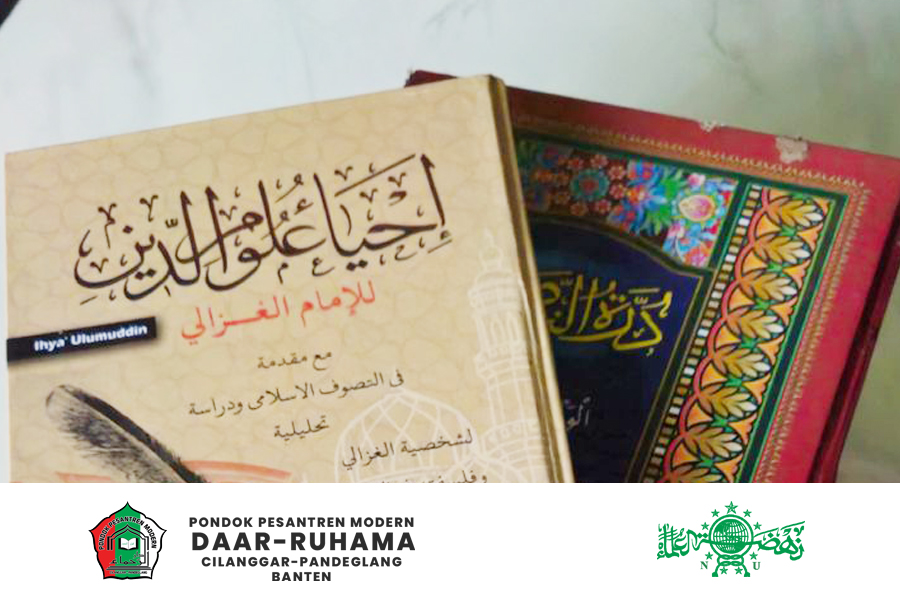 إحياء علوم الدين
للإمام الغزالي
Ihya' Ulumuddin
مع مقدمة
فى التصوف الاسلامى ودراسة
تحليلية
لشخصية الغزالي
درة
PONDOK PESANTREN MODERN
PONDOK PESANTREN MODERN
DAAR-RUHAMA
CILANGGAR-PANDEGLANG
BANTEN
نهضة العلماء
N U